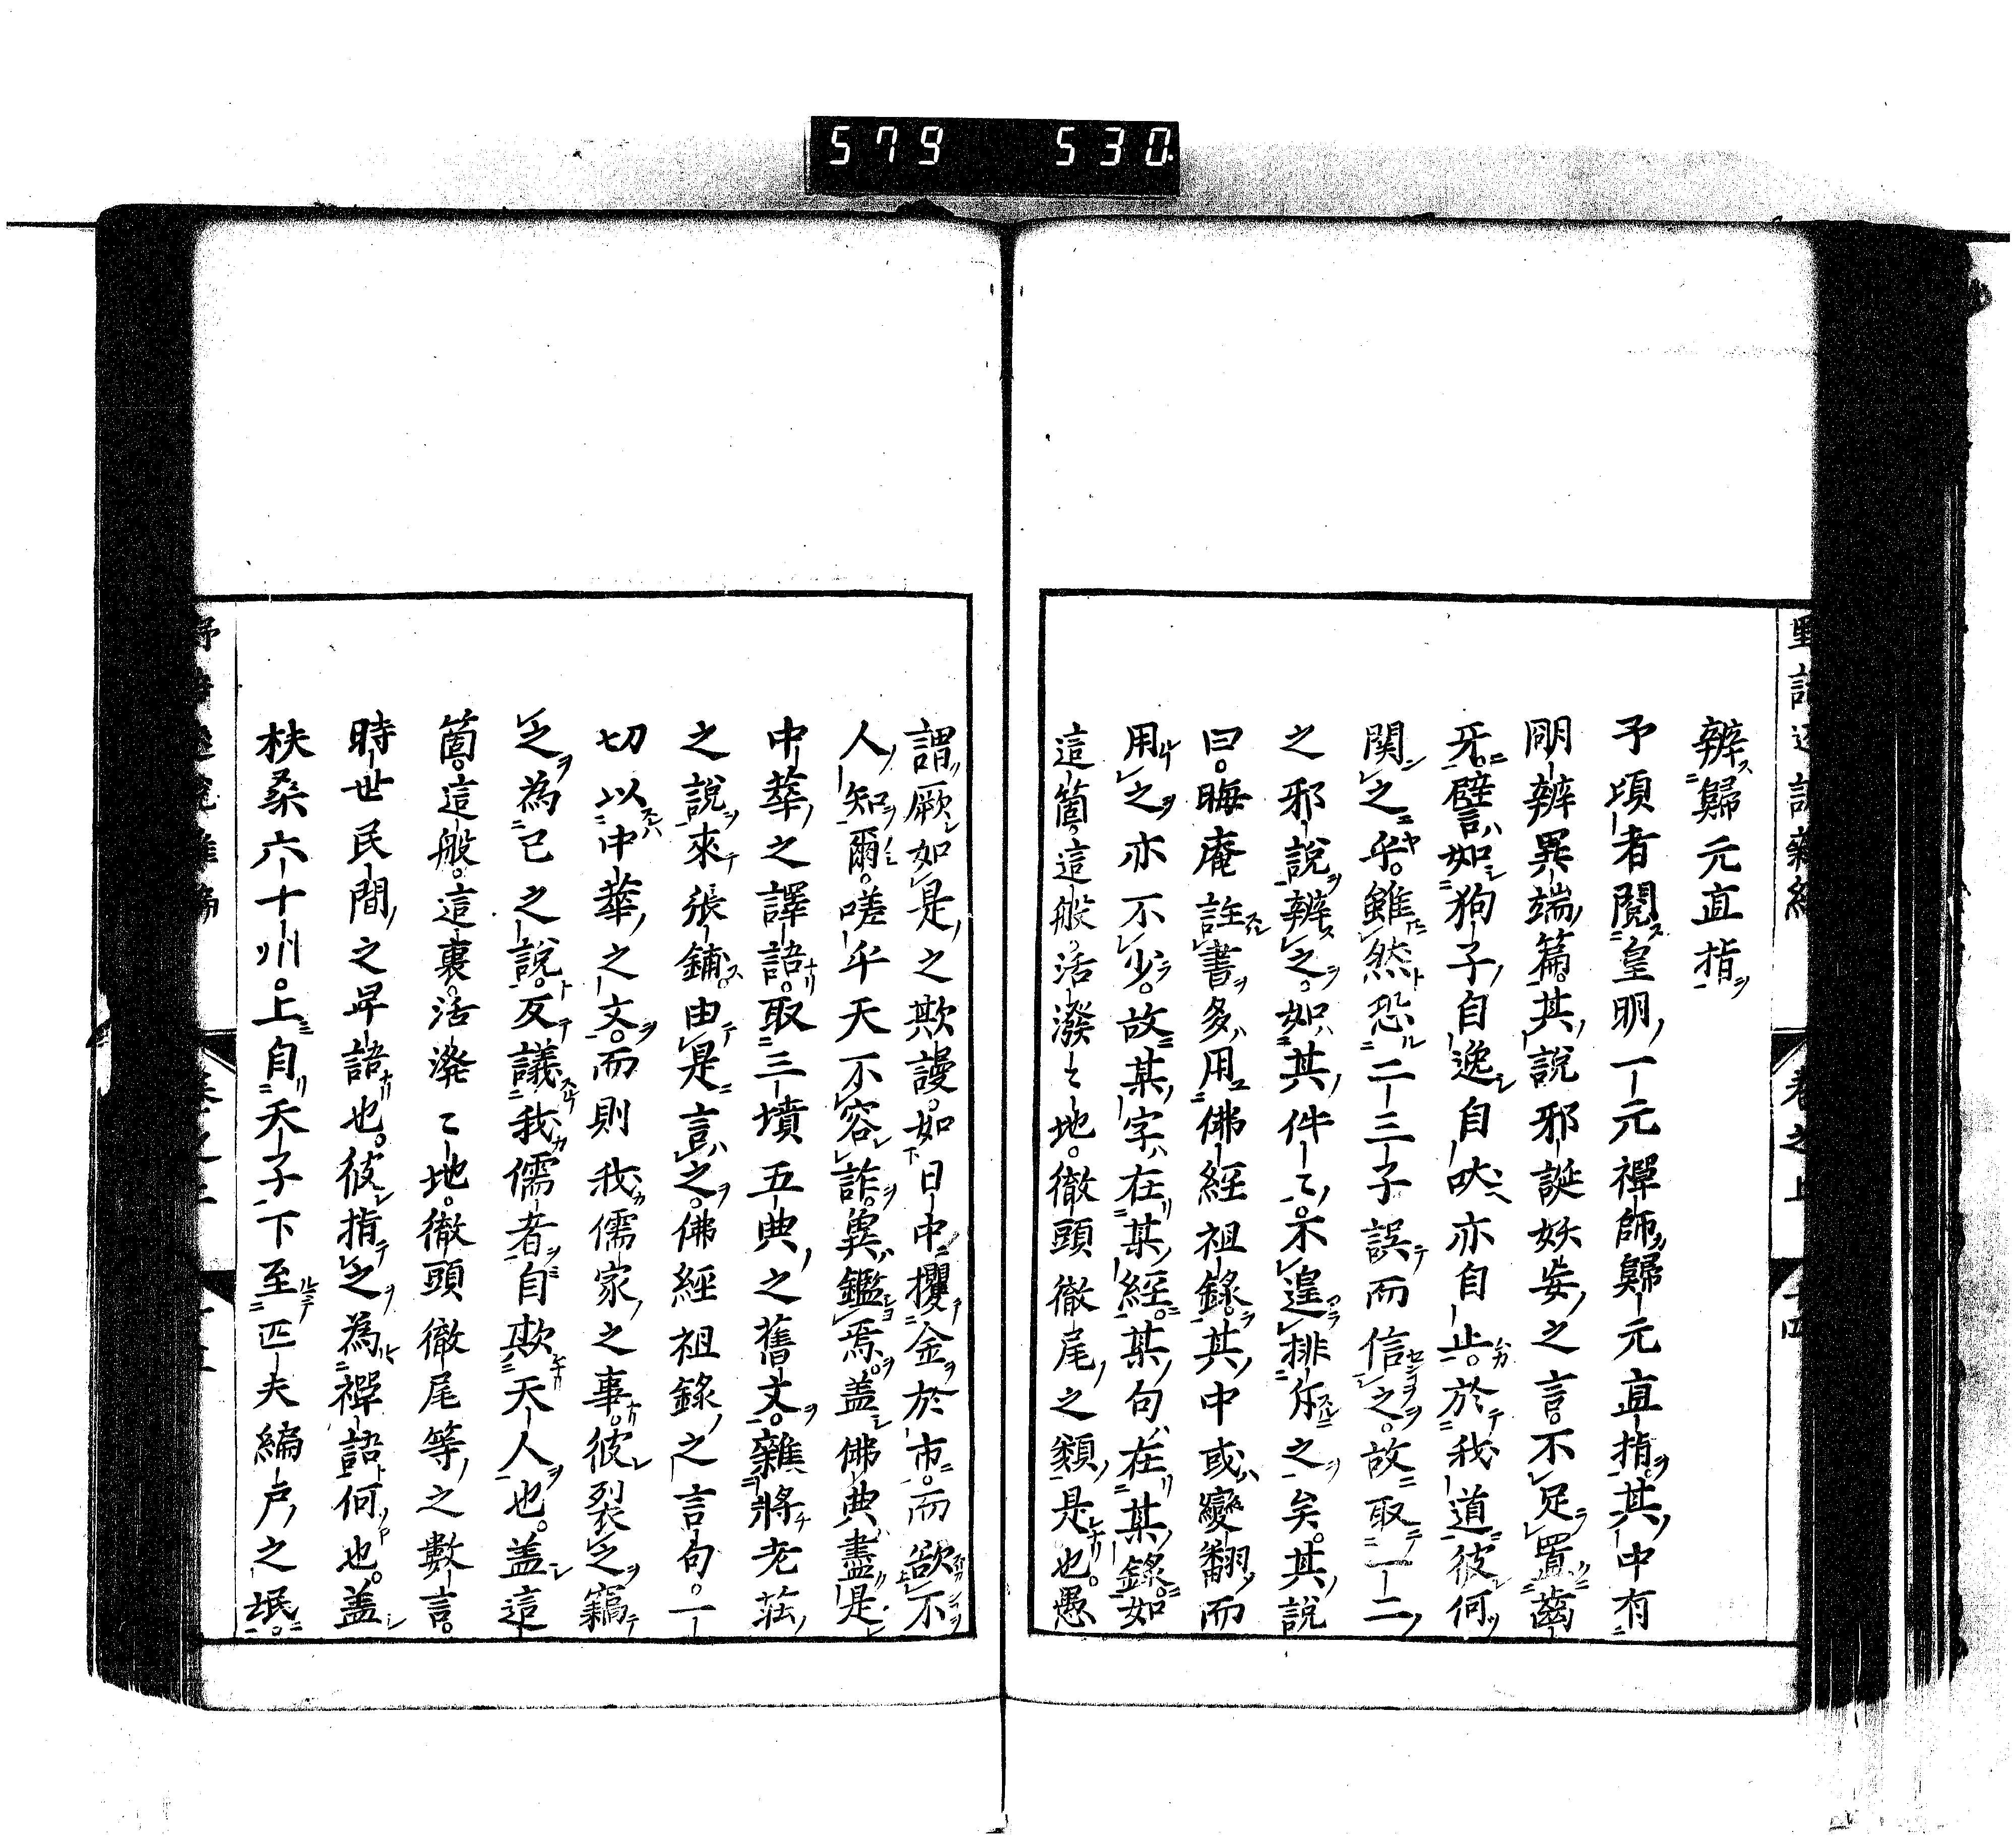 579 530
辨歸元直指
予頃者閱皇明一元禪師歸元直指其中有
闢辨異端篇其說邪誕妖妄之言不足置齒
牙譬如狗子自逸自吠亦自止於我道彼何
関之乎雖然恐二三子誤而信之故取一二
之邪說辨之如其件々不遑排斥之矣其說
曰晦庵註書多用佛經祖錄其中或變翻而
用之亦不少故某字在某經某句在某錄如
這箇這般活潑々地徹頭徹尾之類是也愚
謂厥如是之欺謾如日中攫金於市而欲不
人知爾嗟乎天不容詐奠鑑焉盖佛典盡是
中華之譯語取三墳五典之舊文雜將老莊
之說來張鋪由是言之佛經祖錄之言句一
切以中華之文而則我儒家之事彼裂之竊
之為己之說反議我儒者自欺天人也盖這
箇這般這裏活潑々地徹頭徹尾等之數言
時世民間之平語也彼指之為禪語何也盖
扶桑六十州上自天子下至匹夫編戶之氓